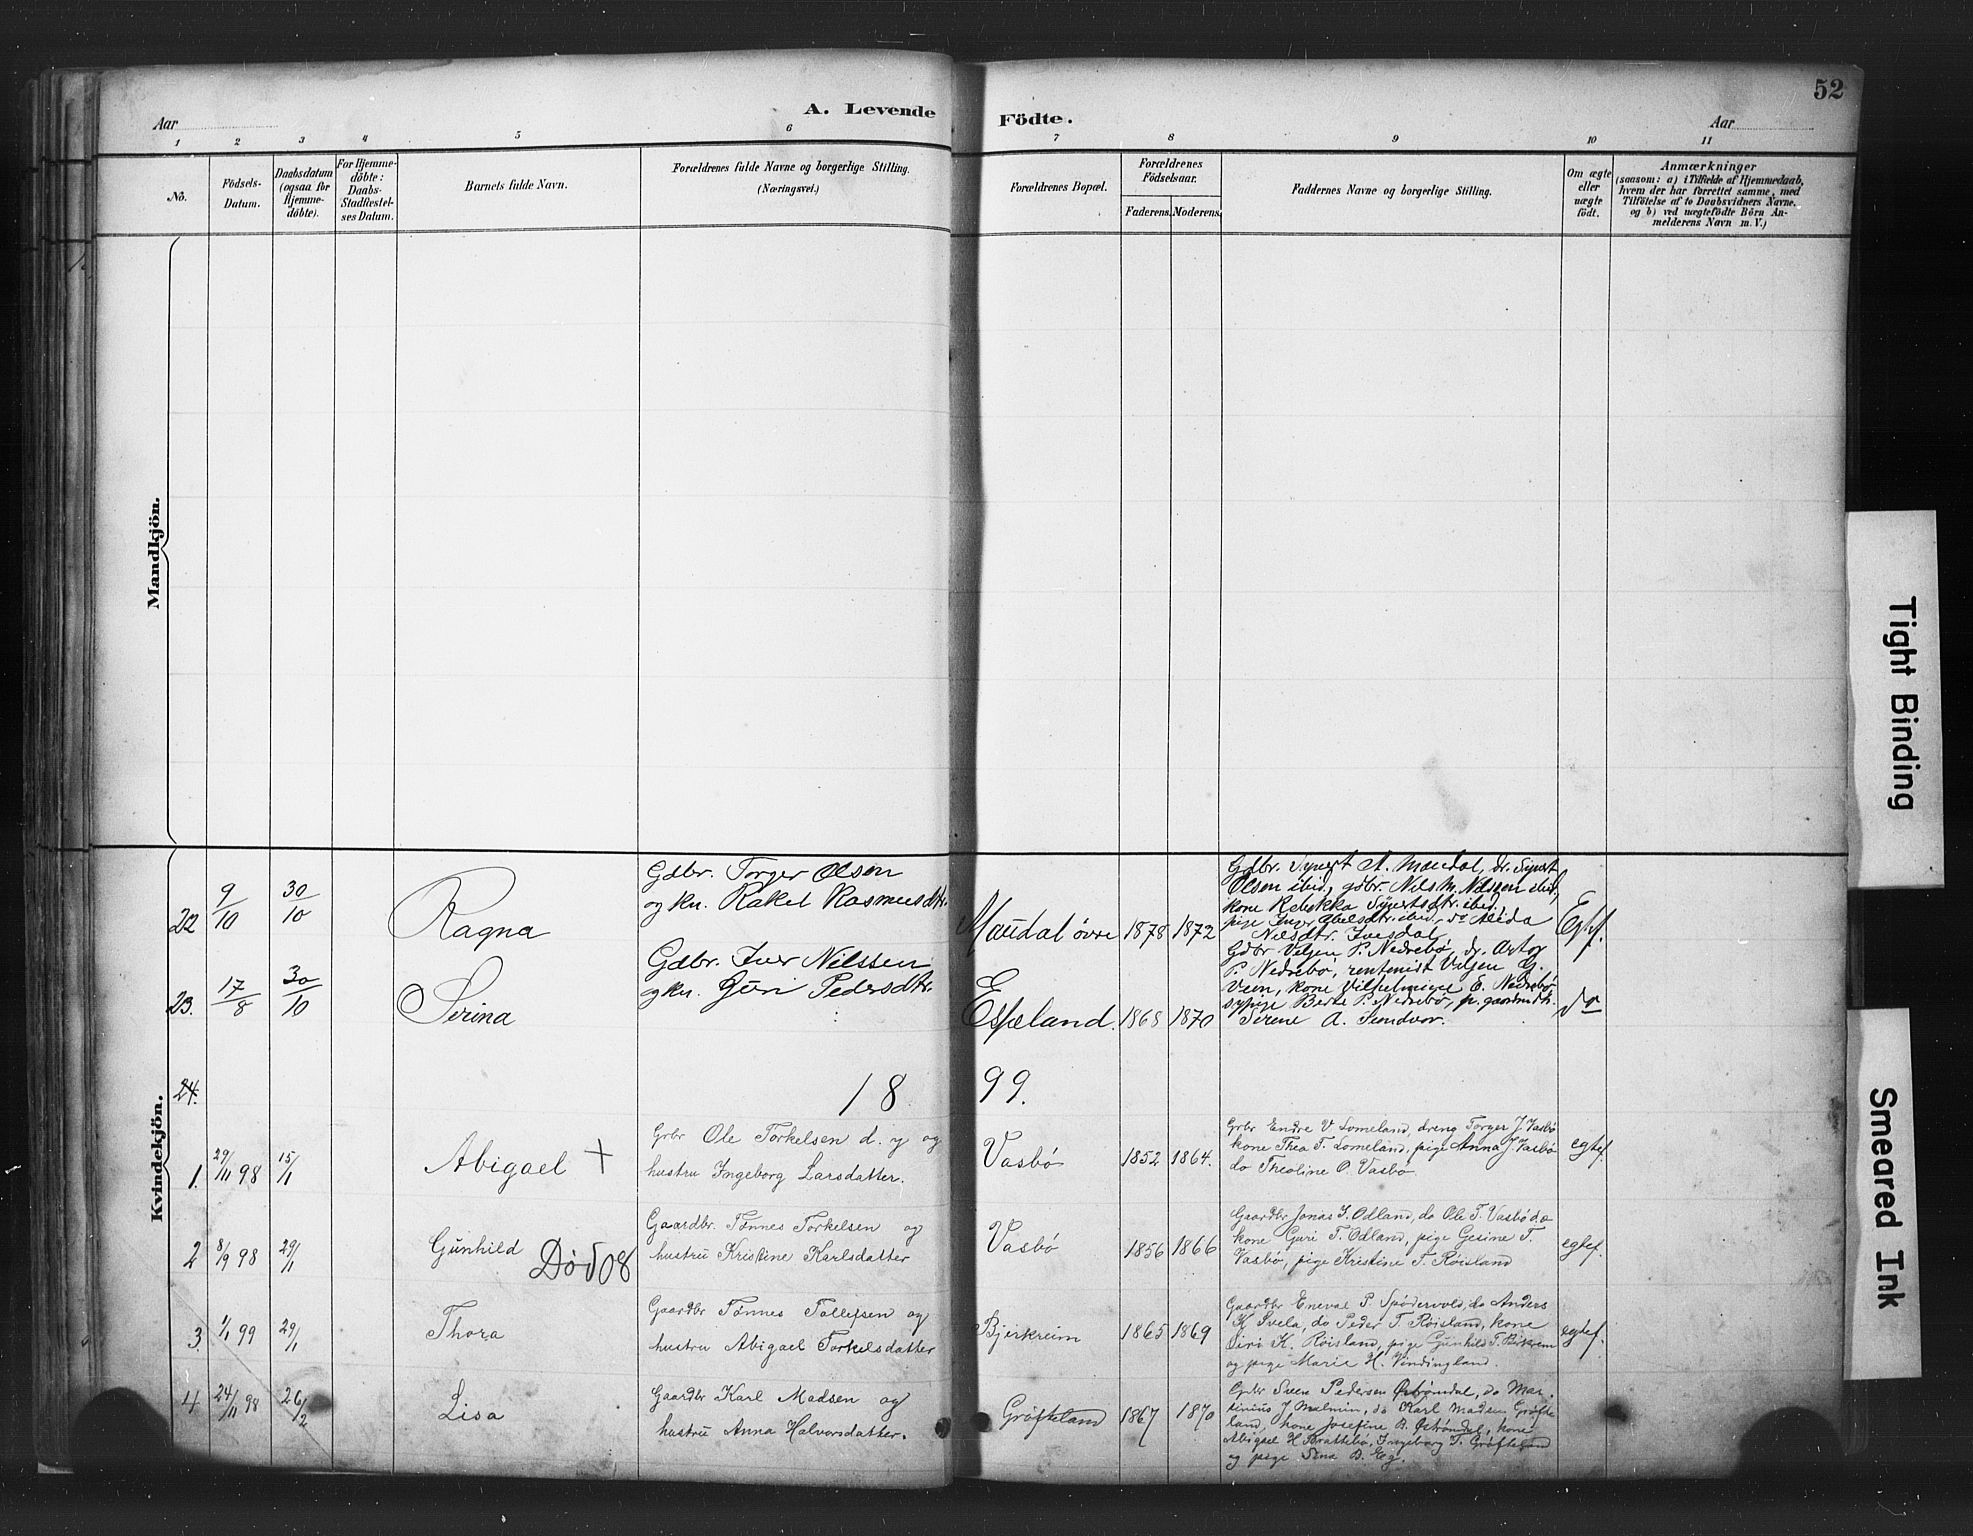 52
A. Levende Födte.
Aar
Aar
1 2 3 4 5 6 7 8 9 10 11
No.
Födsels-
Datum.
Daabsdatum
(ogsaa for
Hjemme-
döbte).
For Hjemme-
döbte:
Daabs-
Stadfæstel-
ses Datum.
Barnets fulde Navn.
Forældrenes fulde Navne og borgerlige Stilling.
(Næringsvei.)
Forældrenes Bopæl.
Forældrenes
Födselsaar.
Faderens.
Moderens.
Faddernes Navne og borgerlige Stilling.
Om ægte
eller
uægte
födt.
Anmærkninger
(saasom: a) i Tilfælde af Hjemmedaab,
hvem der har forrettet samme, med
Tilföielse af to Daabsvidners Navne,
og b) ved uægtefödte Börn An-
melderens Navn m. V.)
Mandkjön.
Kvindekjön.
22
9/10
30/10
Ragna
Gdbr. Torger Olsen
og kn. Rakel Rasmusdtr.
Maudal øvre
1878
1872
Gdbr. Syvert A. Maudal, dr. Syvert
Olsen ibid., gdbr. Nils M. Nilssen ibid,
kone Rebekka Syvertsdtr. ibid.,
pige Inger Abelsdtr. ibid., do Alida
Nilsdtr. Ivesdal
Egtef.
23.
17/8
30/10
Serina
Gdbr. Iver Nilssen
og kn. Guri Pedersdtr.
Espeland.
1868
1870
Gdbr Veljen P. Nedrebø, dr.
P. Nedrebø, rentenist Veljen G.
kone Vilhelmine E. Nedrebø
sypige Berte P. Nedrebø,
Sirene A.
do
24.
1899.
1.
29/11 98
15/1
Abigael +
Grbr Ole Torkelsen d. y og
hustru Ingeborg Larsdatter.
Vasbø
1852
1864.
Grbr Endre V Lomeland, dreng Torger J. Vasbø
kone Thea T. Lomeland, pige Anna J. Vasbø
do Theoline O. Vasbø
egtef.
2
8/9 98
29/1
Gunhild
Død 08
Gaardbr. Tønnes Torkelsen og
hustru Kristine Karlsdatter
Vasbø
1856
1866
Gaardbr Jonas T. Odland, do Ole T. Vasbø d.æ
kone Guri T. Odland, pige Gesine T.
Vasbø, pige Kristine T. Røisland
egtef.
3.
1/1 99
29/1
Thora
Gaardbr Tønnes Tollefsen og
hustru Abigael Torkelsdatter
Bjerkreim
1865
1869
Gaardbr Eneval P. Spødervold, do Anders
K Svela, do Peder T. Røisland, kone
Siri K. Røisland, pige Gunhild T. Birkrem
og pige Marie H. Vindingland.
egtef.
4
24/11 98
26/2
Lisa
Gaardbr Karl Madsen og
hustru Anna Halvorsdatter.
Grøfteland
1867
1870
Grbr Sven Pedersen Østrømdal, do Mar-
tinius J Malmin, do Karl Madsen Grøfte
land, kone Josefine B. Østrømdal, kone
Abigael H Brattebø, Ingeborg T. Grøfteland
og pige Sena B. Eg.
Tight Binding
Smeared Ink